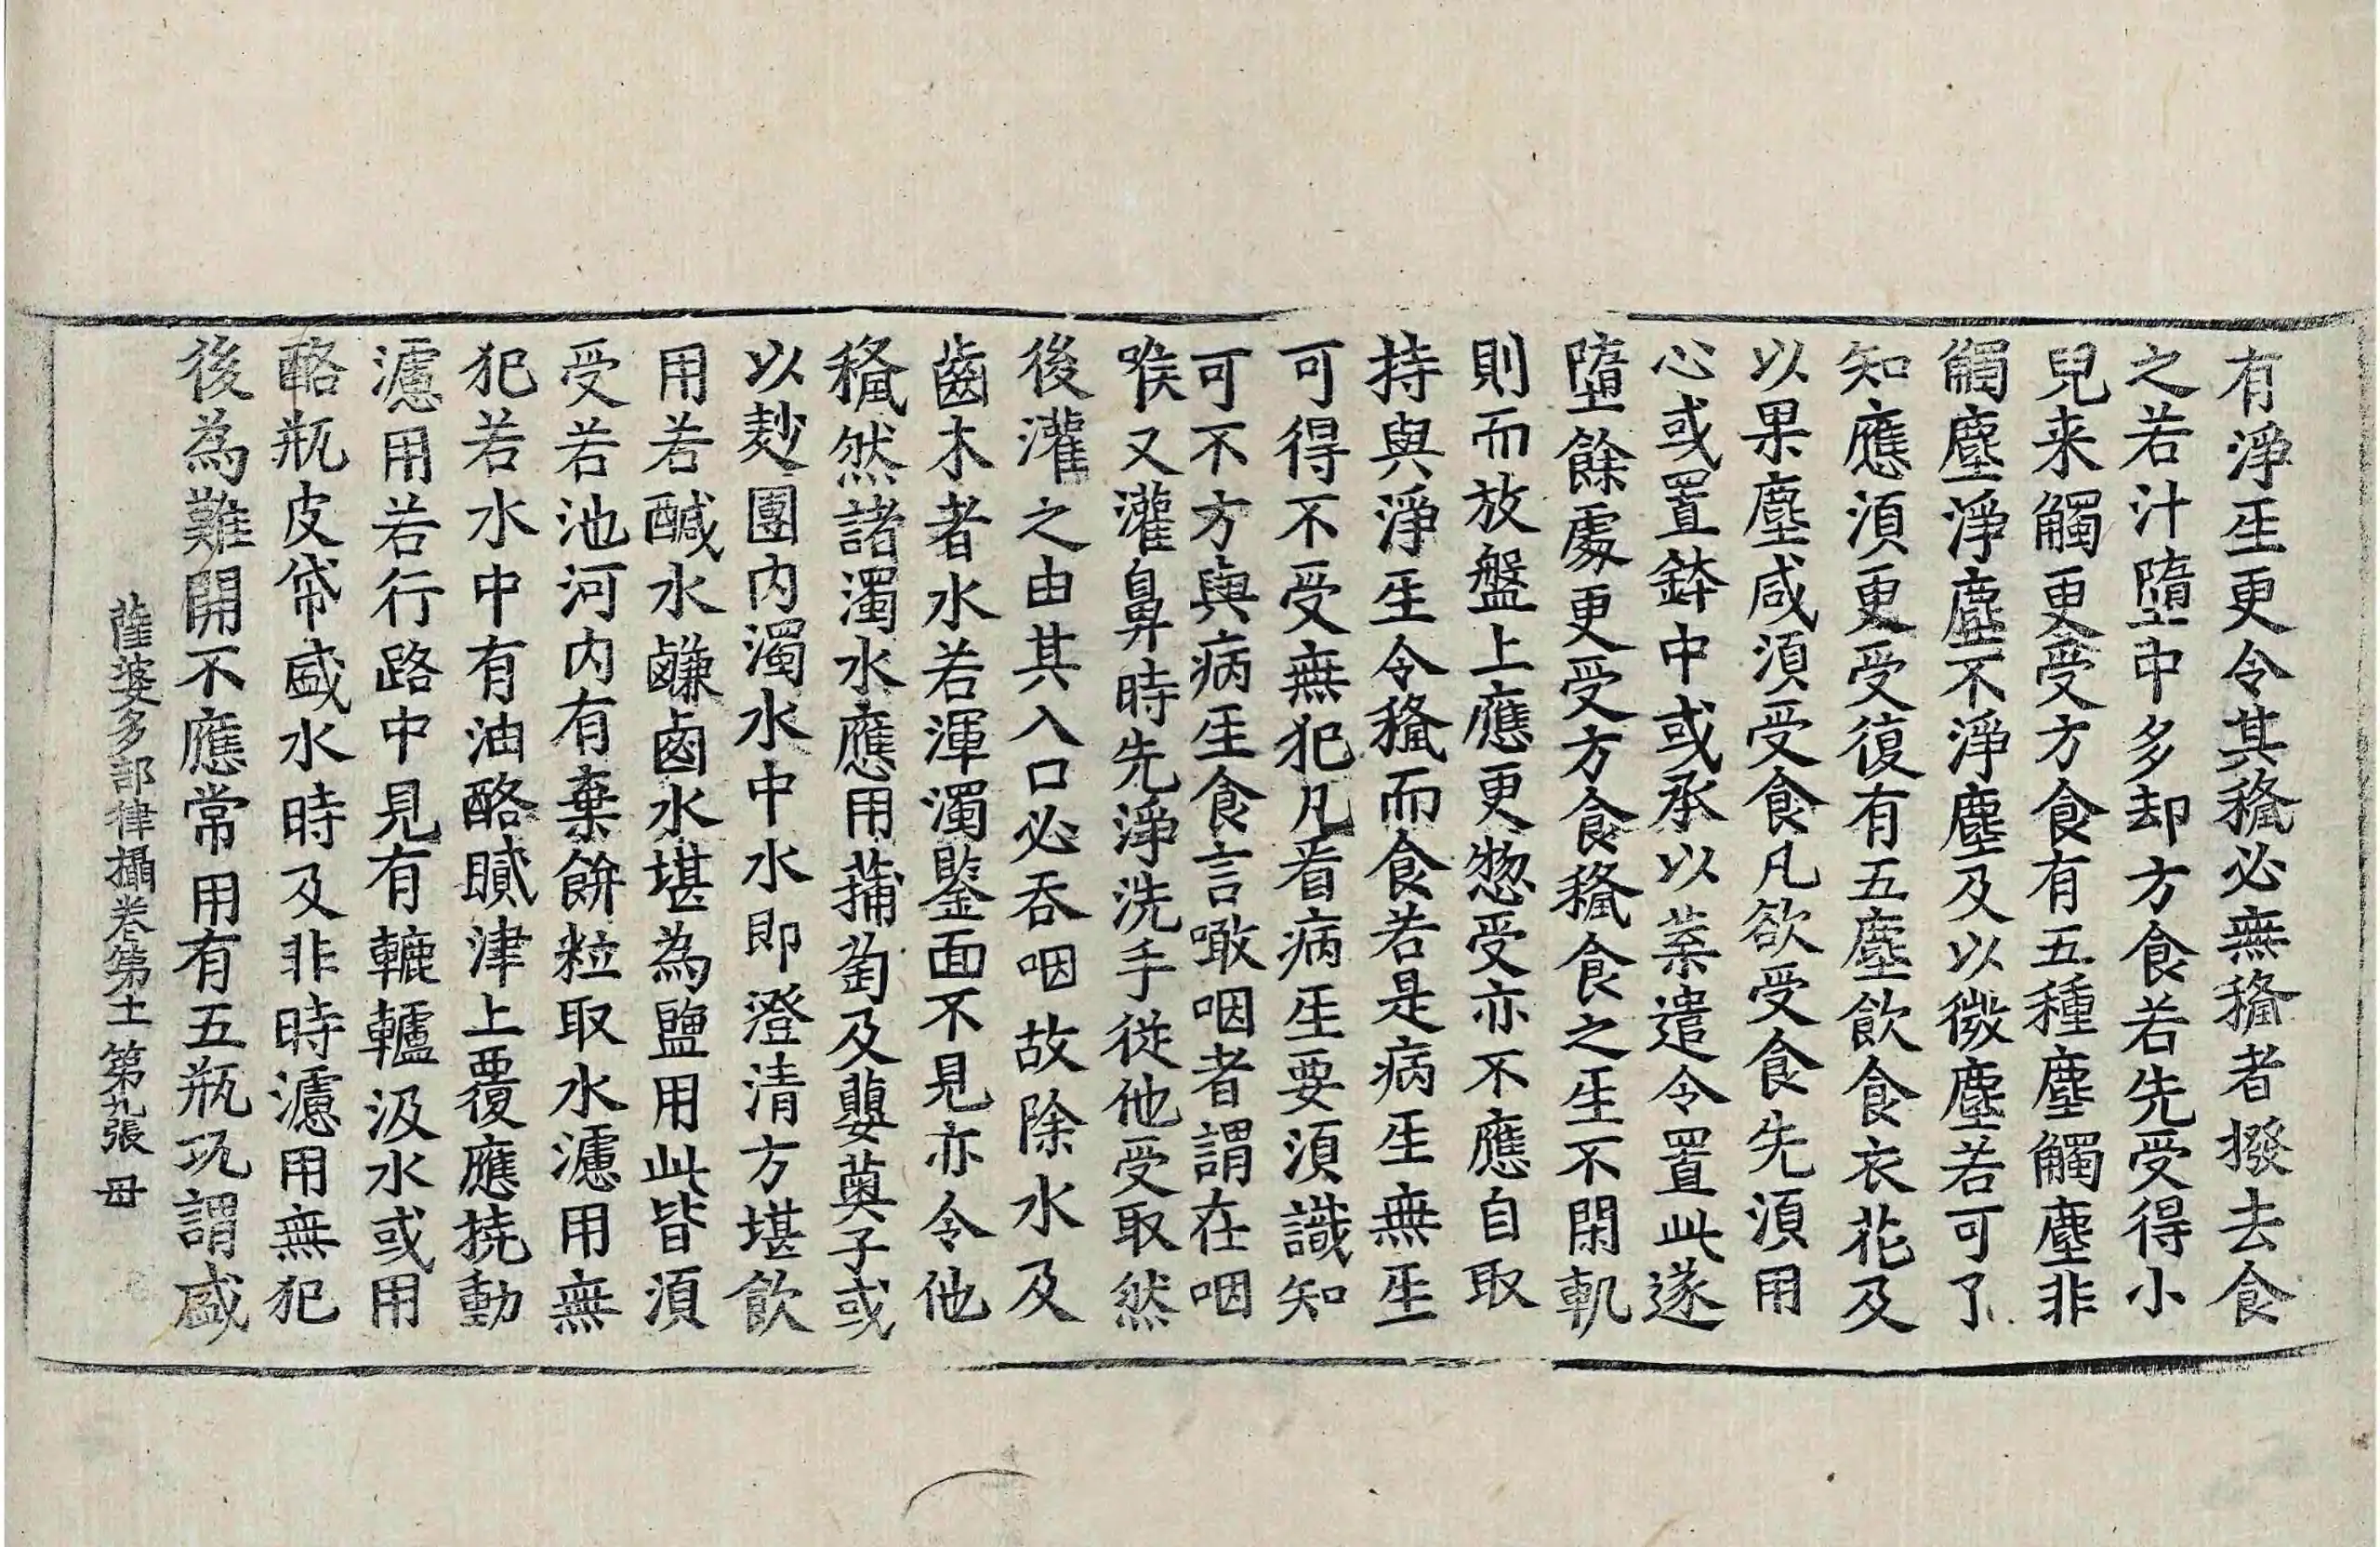 有淨𤯔更令其䅵必無䅵者撥去食
之若汁墮中多却方食若先受得小
兒来觸更受方食有五種塵觸塵非
觸塵淨塵不淨塵及以微塵若可了
知應須更受復有五塵飲食衣花及
以果塵咸須受食凡欲受食先須用
心或置鉢中或承以葉遣令置此遂
墮餘處更受方食䅵食之𤯔不閑軌
則而放盤上應更惣受亦不應自取
持與淨𤯔令䅵而食若是病𤯔無𤯔
可得不受無犯凡看病𤯔要須識知
可不方與病𤯔食言噉咽者謂在咽
喉又灌鼻時先淨洗手從他受取然
後灌之由其入口必吞咽故除水及
齒木者水若渾濁鑒面不見亦令他
䅵然諸濁水應用蒱萄及蘡薁子或
以麨團內濁水中水即澄清方堪飲
用若醎水鹻鹵水堪為鹽用此皆須
受若池河內有棄餅粒取水濾用無
犯若水中有油酪膩津上覆應撓動
濾用若行路中見有轆轤汲水或用
酪瓶皮帒盛水時及非時濾用無犯
後為難開不應常用有五瓶瓨謂盛
薩婆多部律攝卷第十二 第九張 毋